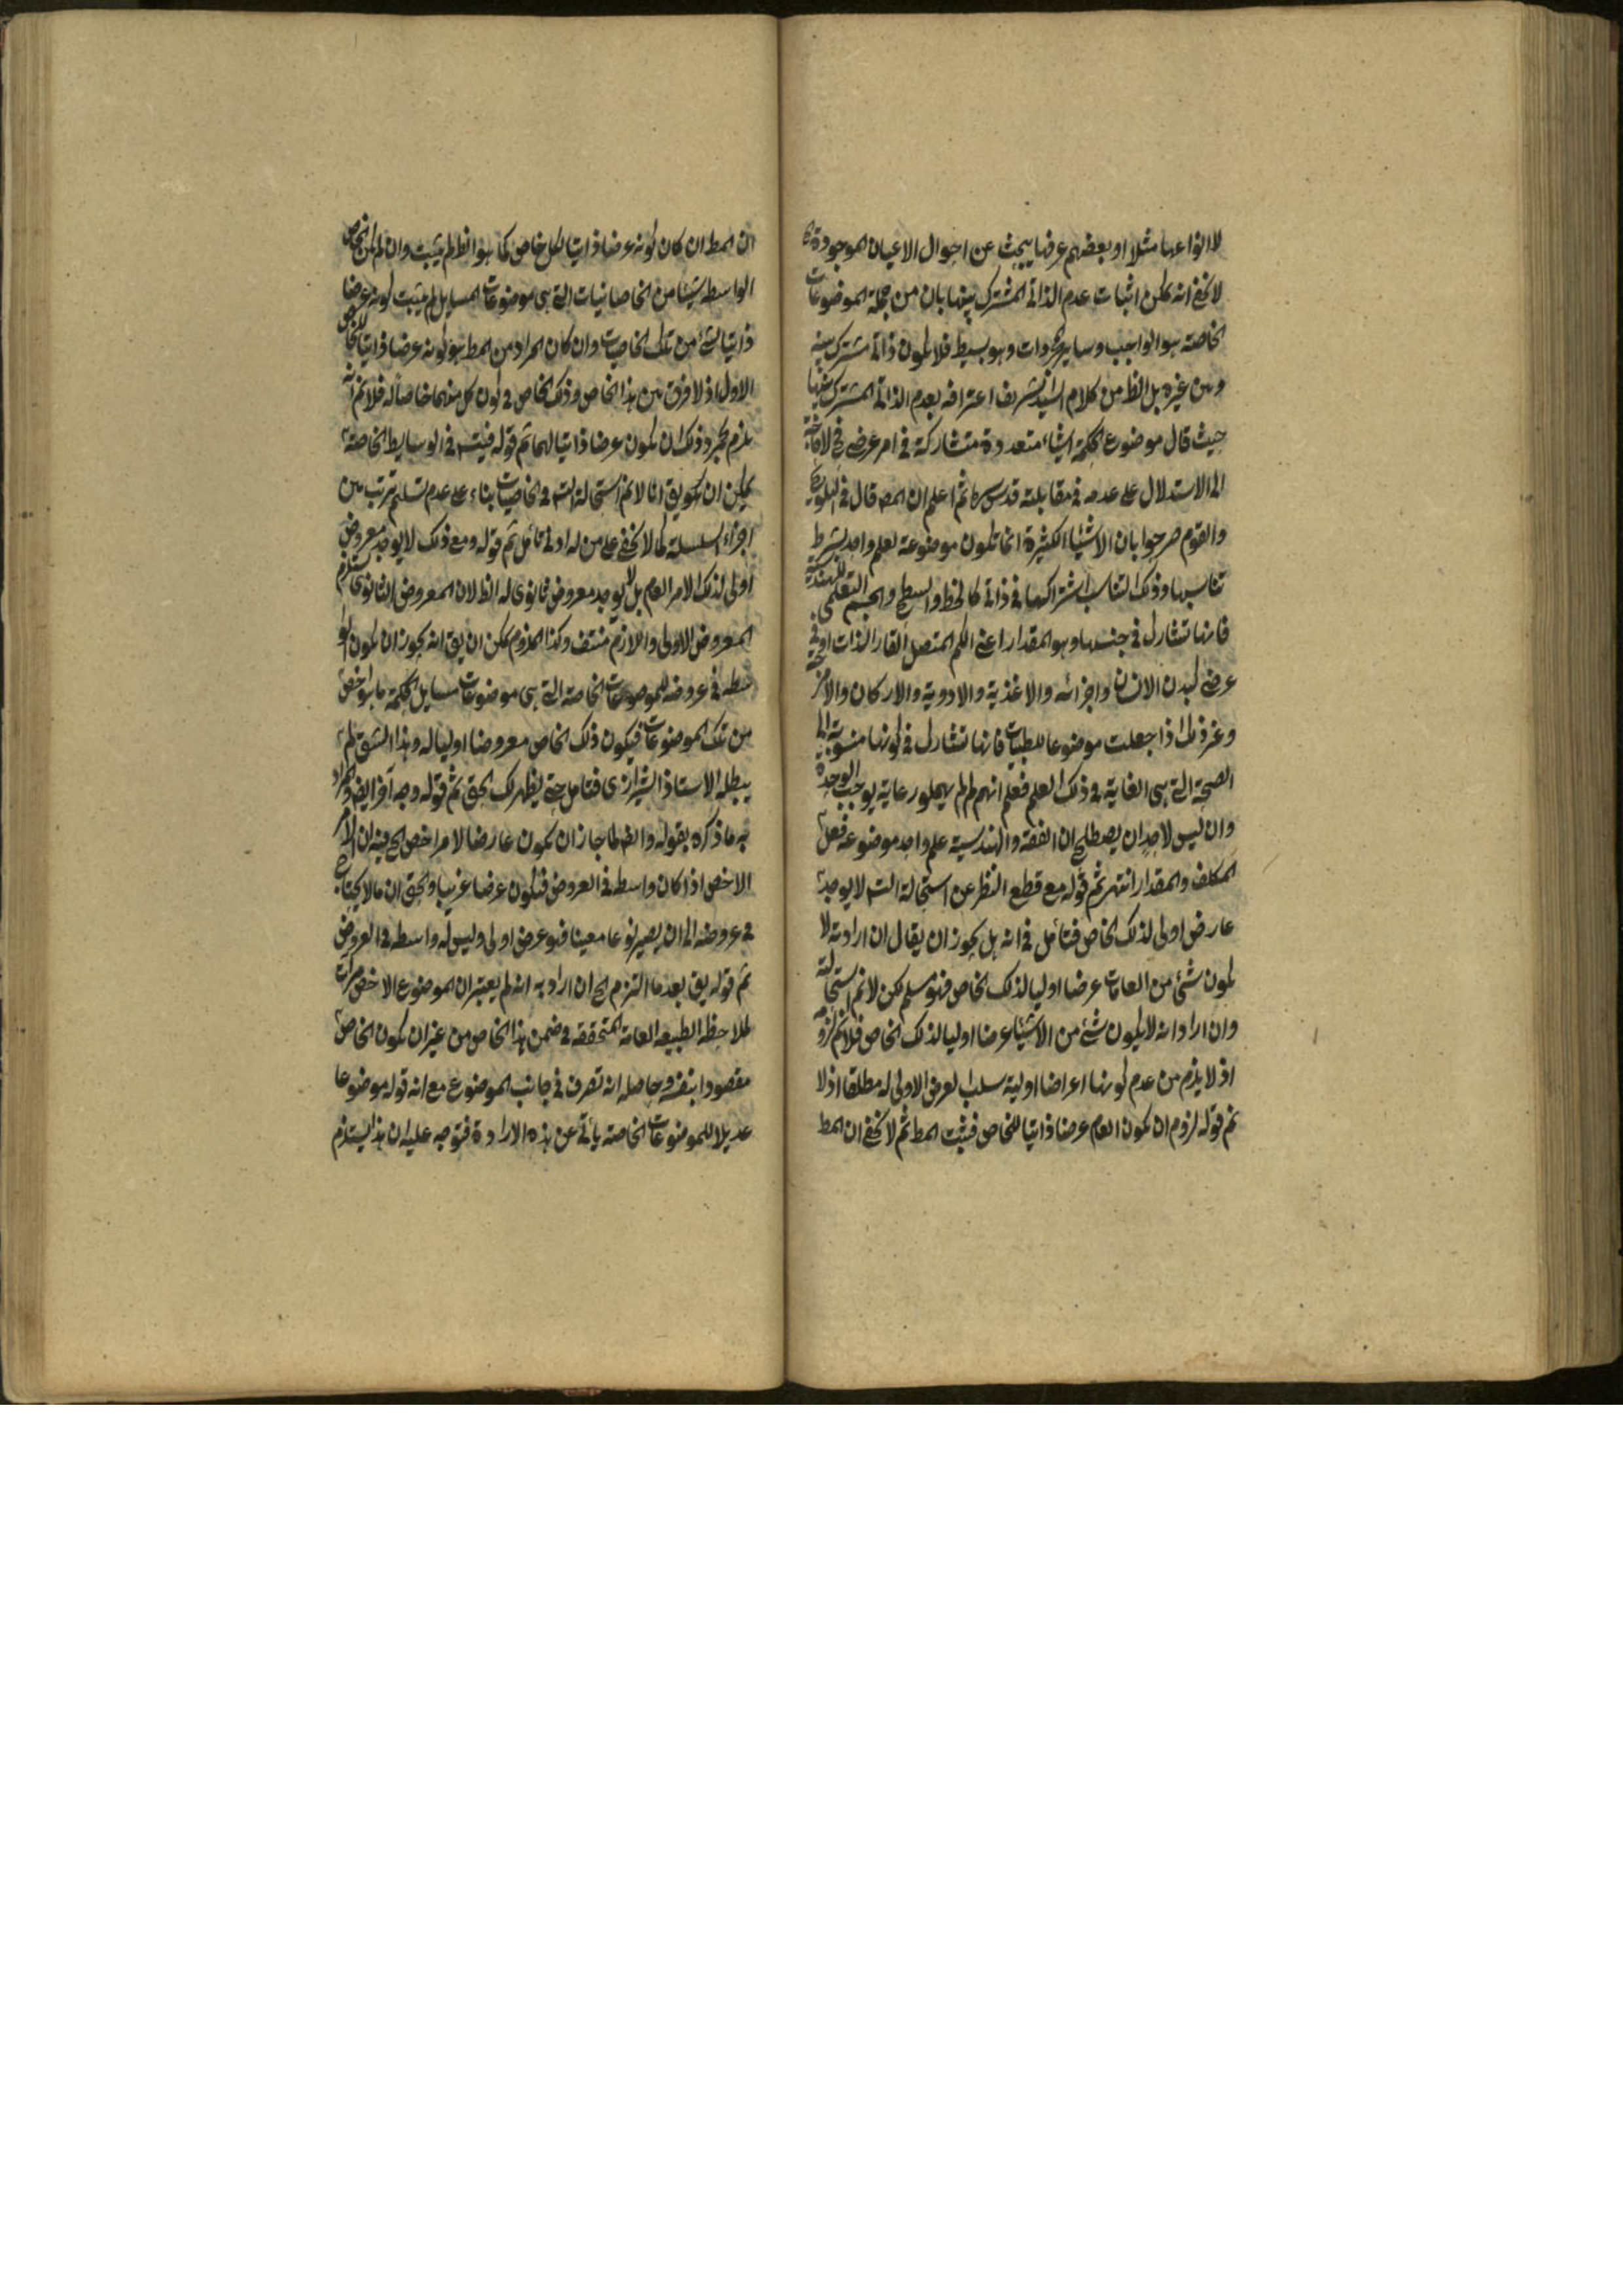 لا انواعها مثلا او بعضهم عرفها يبحث عن احوال الاعيان الموجودة
لا يخفى انه يمكن اثبات عدم الذاتي المشترك بينها بان من جملة الموضوعات
الخاصة هو الواجب وساير المجردات وهو بسيط فلا يكون ذاتي مشترك بينه
وبين غيره بل الظ من كلام السيد الشريف اعترافه بعدم الذاتي المشترك بينها
حيث قال موضوع الحكمة اشياء متعددة متشاركة في امر عرضي فح لا حاجة
الى الاستدلال على عدمه في مقابلته قدس سره ثم اعلم ان المص قال في التلويح
والقوم صرحوا بان الاشياء الكثيرة انما تكون موضوعة لعلم واحد بشرط
تناسبها وذلك التناسب اشتراكها في ذاتي كالخط والسطح والجسم التعلمي للهندسة
فانها تشارك في جنسها وهو المقدار اعني الكم المتصل القار الذات او في
عرضي كبدن الانسان واجزائه والاغذية والادوية والاركان والامزجة
وغير ذلك اذا جعلت موضوعا للطب فانها تتشارك في كونها منسوبة الى
الصحة التي هي الغاية في ذلك العلم فعلم انهم لم يهملوا رعاية يوجب الوحدة
وان ليس لاحد ان يصطلح ان الفقه والهندسة علم واحد موضوعه فعل
المكلف والمقدار انتهى ثم قوله مع قطع النظر عن استحالة التس لا يوجد
عارض اولى لذلك الخاص فتأمل في انه هل يجوز ان يقال ان ارادته لا
يكون شئ من العامات عرضا اوليا لذلك الخاص فهو مسلم لكن لانم استحالته
وان اراد انه لا يكون شئ من الاشياء عرضا اوليا لذلك الخاص فلانم لزومه
اذ لا يلزم من عدم كونها اعراضا اولية سلب العرض الاولى له مطلقا اذ لا
ثم قوله لزوم ان يكون العام عرضا ذاتيا للخاص فيثبت المط ثم لا يخفى ان المط
ان المط ان كان كونه عرضا ذاتيا لكل خاص كما هو الظ لم يثبت وان لم يكن الخاص
الواسطة شيئا من الخاصيات التي هي موضوعات المسايل لم يثبت كونه عرضا
ذاتيا لشئ من تلك الخاصيات وان كان المراد من المط هو كونه عرضا ذاتيا للخاص
الاول اذ لا فرق بين هذا الخاص وذلك الخاص في كون كل منهما خاصا له فلانم انه
يلزم بمجرد ذلك ان يكون عرضا ذاتيا لهما ثم قوله فيتس في الوسايط الخاصة
يمكن ان يق انا لانم استحالة التس في الخاصيات بناء على عدم تسليم ترتب بين
اجزاء السلسلة كما لا يخفى على من له ادنى تأمل ثم قوله ومع ذلك لا يوجد معروض
اولى لذلك الامر العام بل لا يوجد معروض ثانوى له الظ لان المعروض الثانوى يستلزم
المعروض الاولى واللازم منتف وكذا الملزوم يمكن ان يق انه يجوز ان يكون الوا
سطة في عروضه للموضوعات الخاصة التي هي موضوعات مسايل الحكمة ما هو اخص
من تلك الموضوعات فيكون ذلك الخاص معروضا اوليا له وهذا الشق لم
يبطله الاستاذ الشيرازى فتامل حتى يظهر لك الحق ثم قوله وجه آخر ايض والمراد
به ما ذكره بقوله وايض لما جاز ان يكون عارضا لامر اخص الخ فيه ان الامر
الاخص اذا كان واسطة في العروض فيكون عرضا غريبا والحق ان ما لا يحتاج
في عروضه الى ان يصير نوعا معينا فهو عرض اولى وليس له واسطة في العروض
ثم قوله يق بعد ما التزم الخ ان اراد به انه لم يعتبر ان الموضوع الاخص مرات
لملاحظة الطبيعة العامة المتحققة في ضمن هذا الخاص من غير ان يكون الخاص
مقصودا بنفسه وحاصله انه تصرف في جانب الموضوع مع انه قوله موضوعا
عديلا للموضوعات الخاصة يأبى عن هذه الارادة فتوجه عليه ان هذا يستلزم